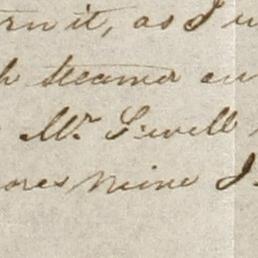 rn it, as I
h steamer
Mr. Sewell
ores mine I